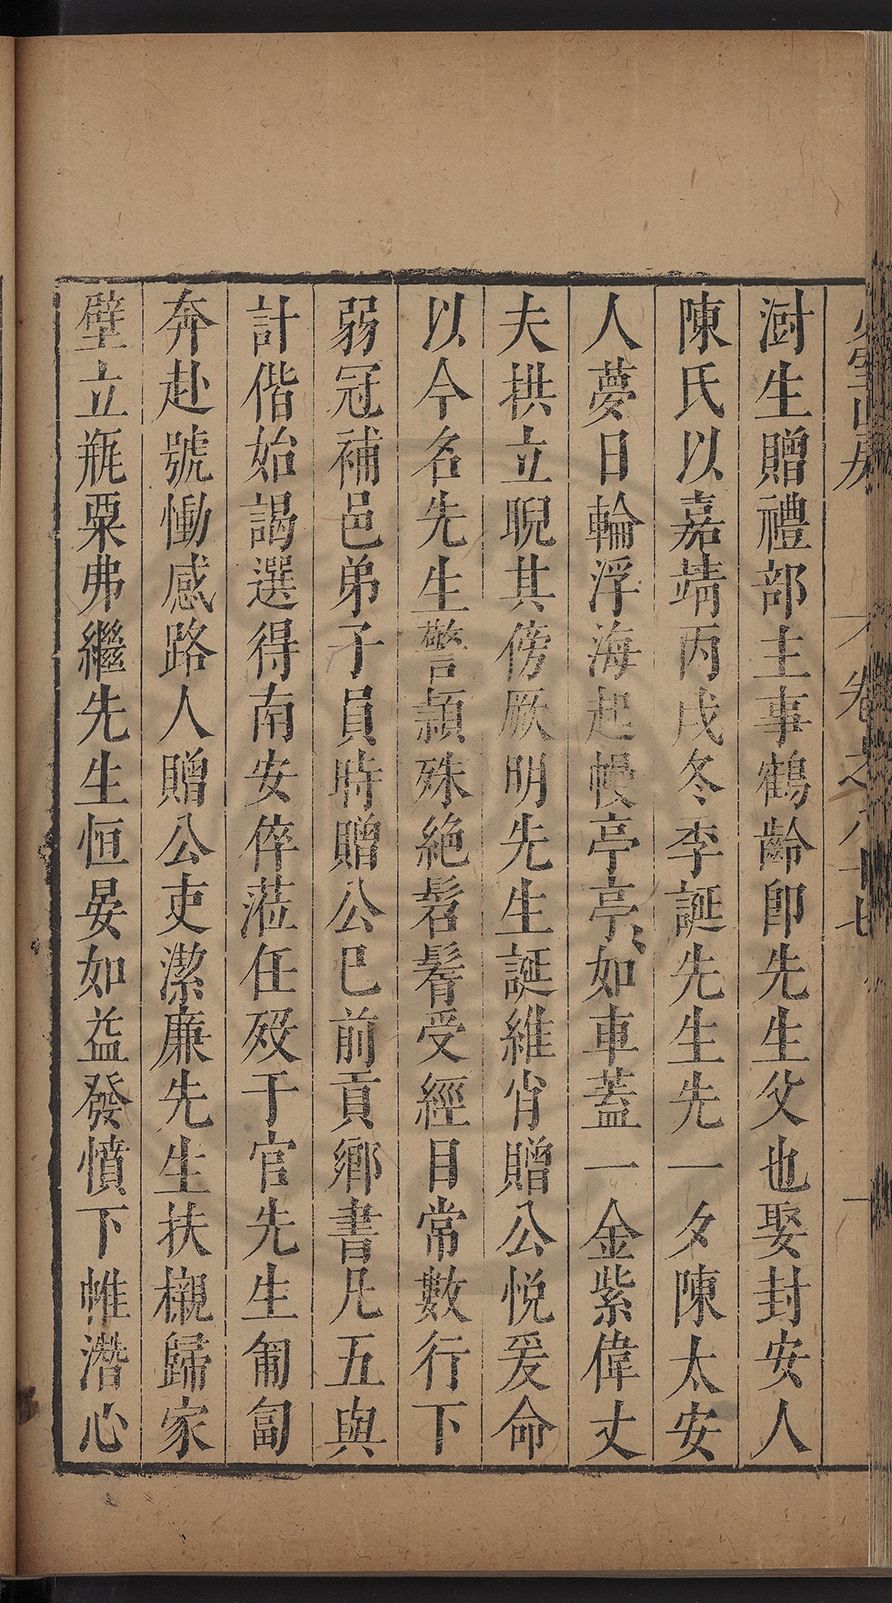 澍生贈禮部主事鶴齡卽先生父也娶封安人
陳氏以嘉靖丙戌冬季誕先生先一夕陳太安
人夢日輪浮海起幔亭亭如車蓋一金紫偉丈
夫拱立睨其傍厥明先生誕維肖贈公悅爰命
以今名先生警頴殊絕髫髾受經目常數行下
弱冠補邑弟子員時贈公巳前貢鄉書凡五與
計偕始謁選得南安倅蒞任歿于官先生匍匐
奔赴號慟感路人贈公吏潔廉先生扶櫬歸家
壁立瓶粟弗繼先生恒晏如益發憤下帷潛心